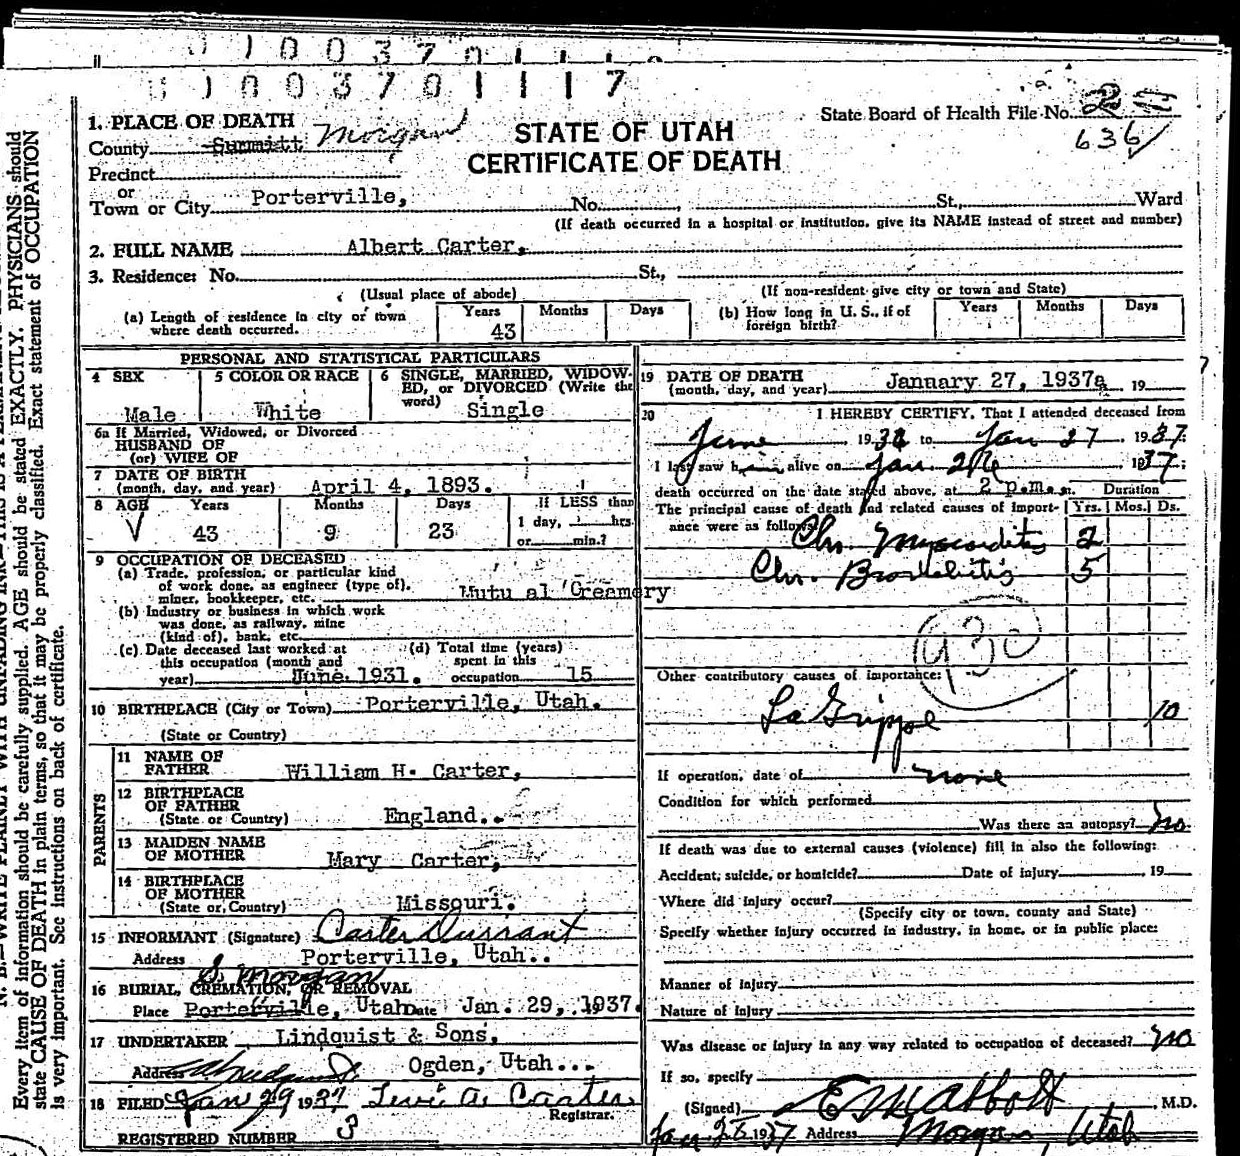 1 0 0 3 7 0 1 1 1
1 0 0 3 7 0 1 1 1 7
State Board of Health File No. 2
636
1. PLACE OF DEATH
County Summitt Morgan
STATE OF UTAH
CERTIFICATE OF DEATH
Precinct
or
Town or City Porterville, No. , St., Ward
(If death occurred in a hospital or institution, give its NAME instead of street and number)
2. FULL NAME Albert Carter,
3. Residence: No. St.,
(Usual place of abode) (If non-resident give city or town and State)
(a) Length of residence in city or town where death occurred. Years 43 Months Days
(b) How long in U. S., if of foreign birth? Years Months Days
PERSONAL AND STATISTICAL PARTICULARS
4 SEX Male
5 COLOR OR RACE White
6 SINGLE, MARRIED, WIDOWED, or DIVORCED (Write the word) Single
6a If Married, Widowed, or Divorced
HUSBAND OF
(or) WIFE OF
7 DATE OF BIRTH
(month, day, and year) April 4, 1893.
8 AGE Years 43 Months 9 Days 23
If LESS than
1 day, hrs.
or min.?
9 OCCUPATION OF DECEASED
(a) Trade, profession, or particular kind
of work done, as engineer (type of),
miner, bookkeeper, etc. Mutu al Creamery
(b) Industry or business in which work
was done, as railway, mine
(kind of), bank, etc.
(c) Date deceased last worked at
this occupation (month and
year) June 1931.
(d) Total time (years)
spent in this
occupation 15
10 BIRTHPLACE (City or Town) Porterville, Utah.
(State or Country)
PARENTS
11 NAME OF
FATHER William H. Carter,
12 BIRTHPLACE
OF FATHER
(State or Country) England..
13 MAIDEN NAME
OF MOTHER Mary Carter,
14 BIRTHPLACE
OF MOTHER
(State or Country) Missouri.
15 INFORMANT (Signature) Carter Durrant
Address Porterville, Utah..
S. Morgan
16 BURIAL, CREMATION, OR REMOVAL
Place Porterville, Utah Date Jan. 29, 1937.
17 UNDERTAKER Lindquist & Sons,
Address Ogden, Utah...
18 FILED Jan 29 1937 Levie A. Carter
Registrar.
REGISTERED NUMBER 3
19 DATE OF DEATH
(month, day, and year) January 27, 1937a 19
20 I HEREBY CERTIFY, That I attended deceased from
June 193 to Jan 27, 1937;
I last saw him alive on Jan. 26 1937;
death occurred on the date stated above, at 2 p.m. m. Duration
The principal cause of death and related causes of importance were as follows: Yrs. Mos. Ds.
Chr. Myocarditis 2
Chr. Bronchitis 5
930
Other contributory causes of importance:
La Grippe 10
If operation, date of none
Condition for which performed
Was there an autopsy? no
If death was due to external causes (violence) fill in also the following:
Accident, suicide, or homicide? Date of injury 19
Where did injury occur?
(Specify city or town, county and State)
Specify whether injury occurred in industry, in home, or in public place:
Manner of injury
Nature of Injury
Was disease or injury in any way related to occupation of deceased? no
If so, specify
(Signed) E M Abbott, M.D.
Jan 28 1937 Address Morgan, Utah
Every item of information should be carefully supplied. AGE should be stated EXACTLY. PHYSICIANS should
state CAUSE OF DEATH in plain terms, so that it may be properly classified. Exact statement of OCCUPATION
is very important. See instructions on back of certificate.